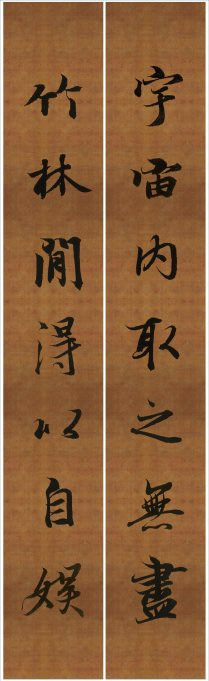 宇宙內取之無盡
竹林閒得以自娛